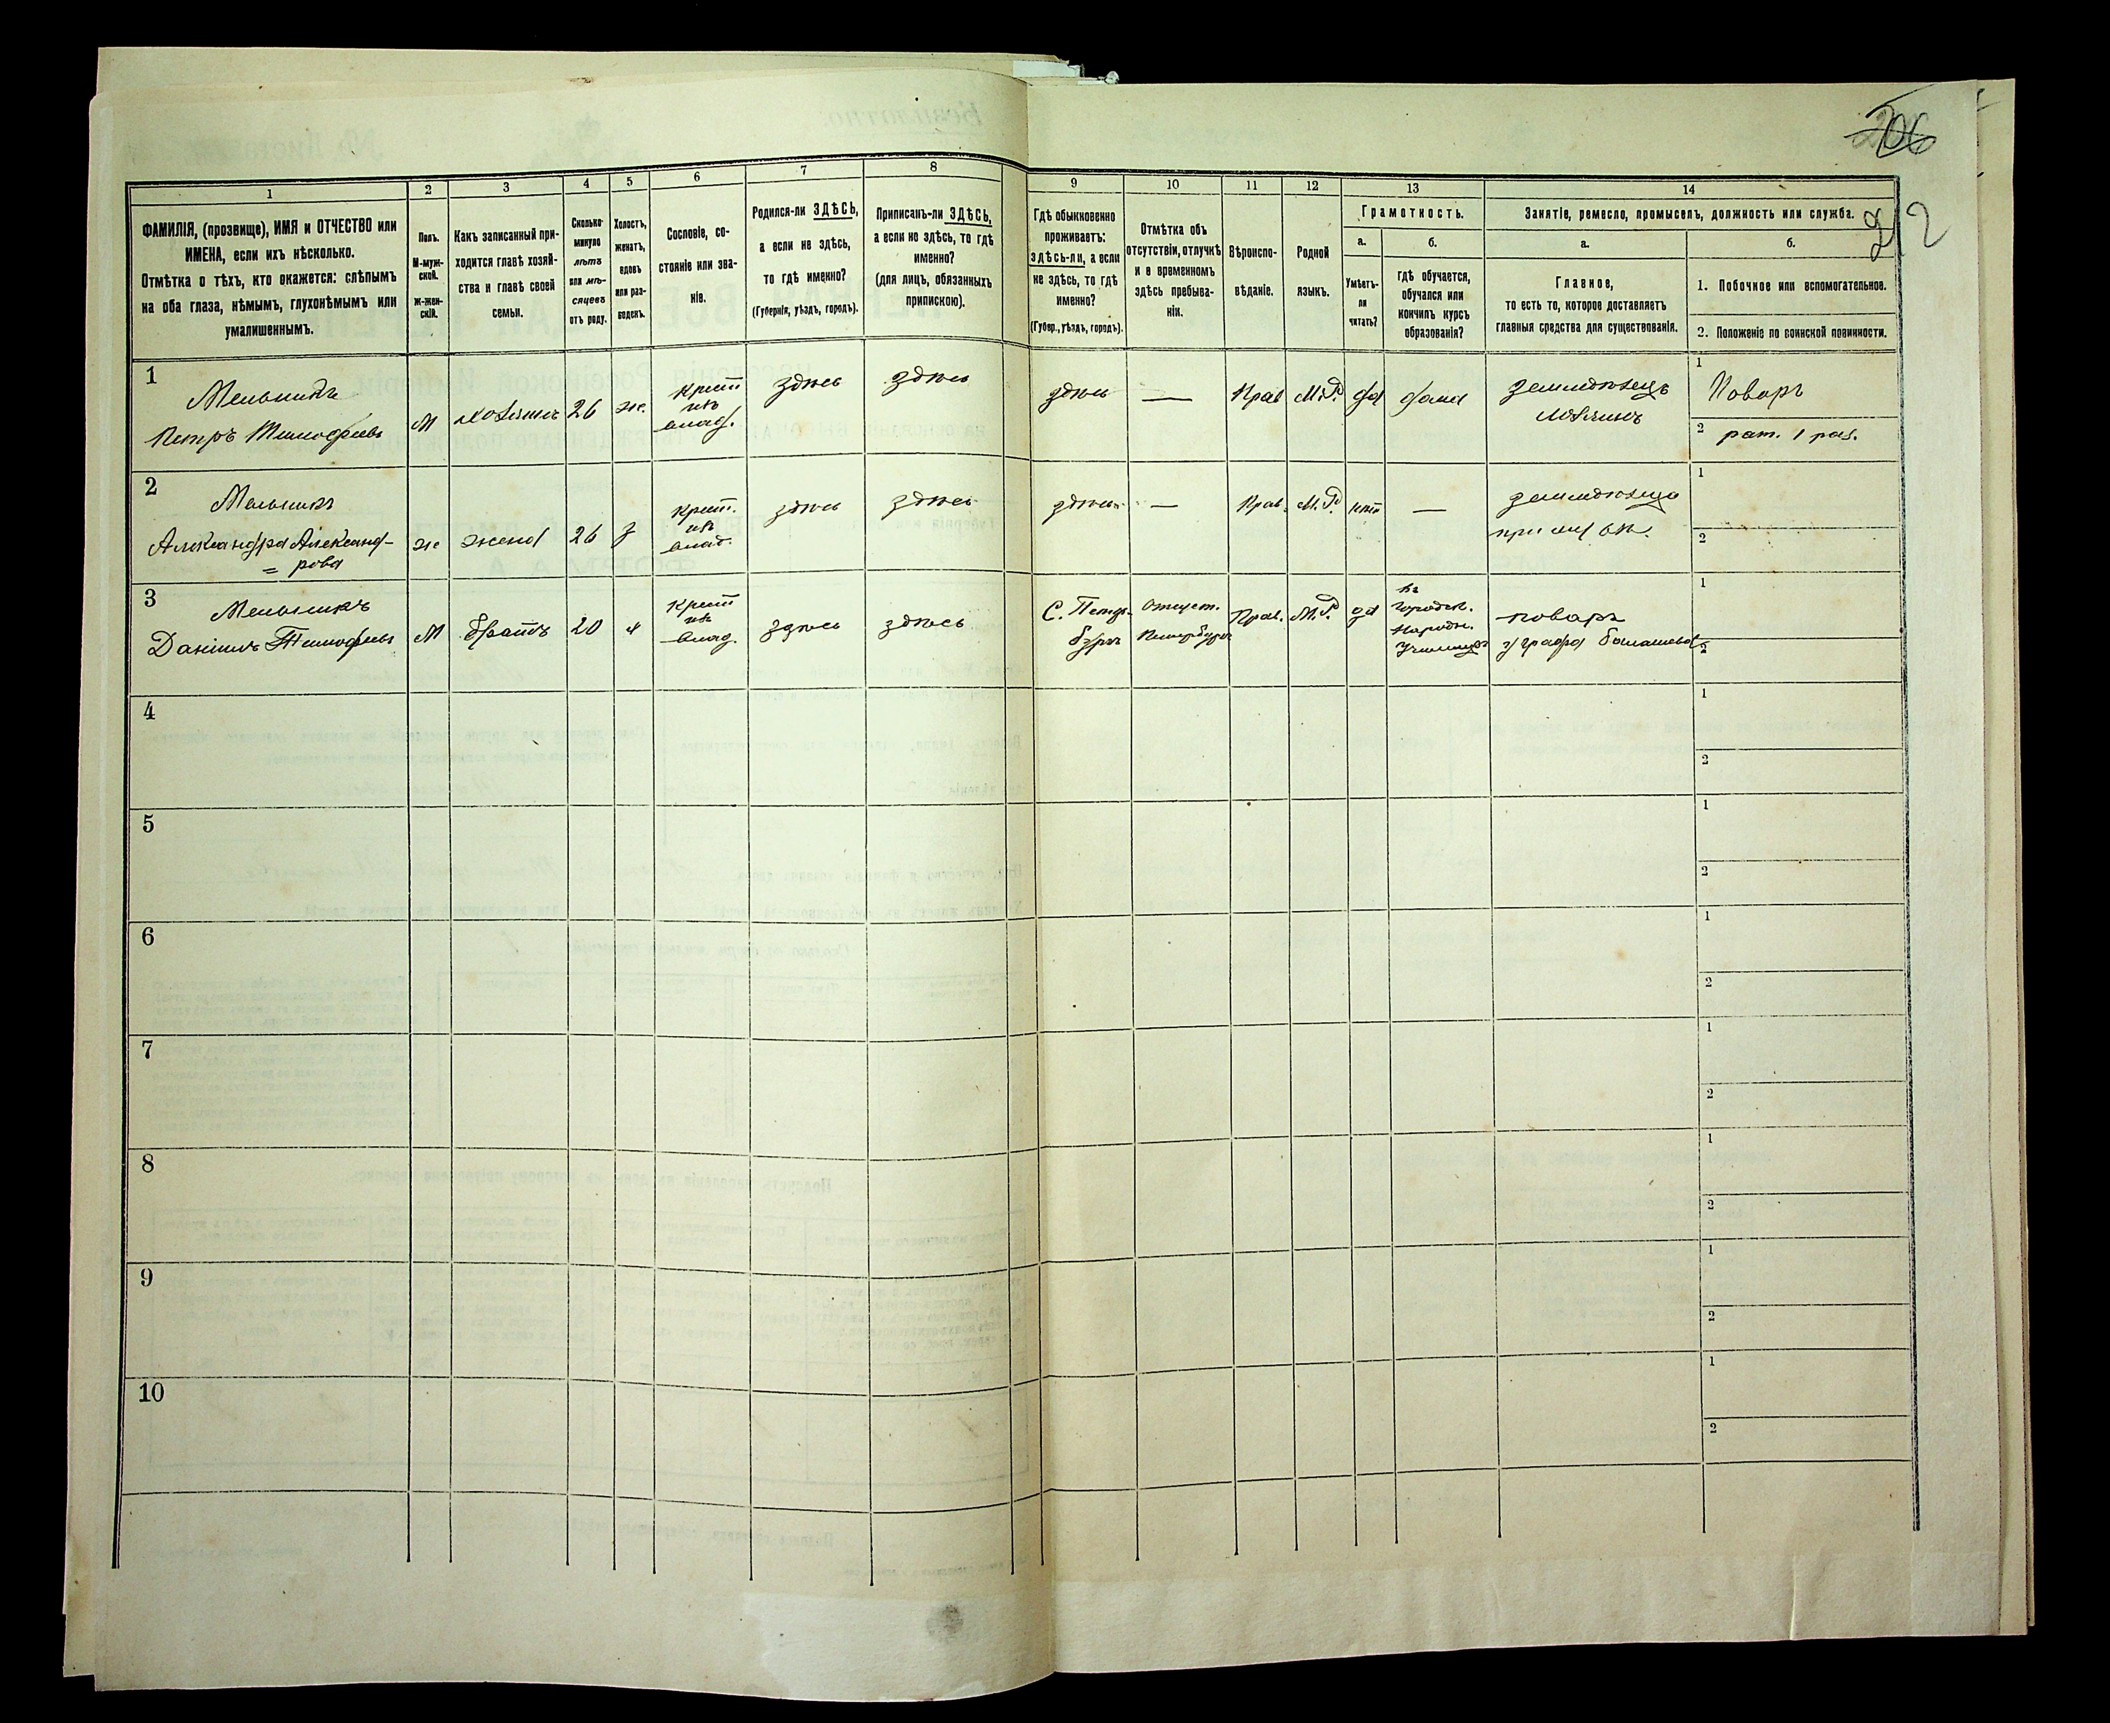 206
212
1
2
3
4
5
6
7
8
ФАМИЛІЯ, (прозвище), ИМЯ и ОТЧЕСТВО или
ИМЕНА, если ихъ нѣсколько.
Отмѣтка о тѣхъ, кто окажется: слѣпымъ
на оба глаза, нѣмымъ, глухонѣмымъ или
умалишеннымъ.
Полъ.
М-муж-
ской.
Ж-жен-
скій.
Какъ записанный при-
ходится главѣ хозяй-
ства и главѣ своей
семьи.
Сколько
минуло
лѣтъ
или мѣ-
сяцевъ
отъ роду.
Холостъ,
женатъ,
вдовъ
или раз-
веденъ.
Сословіе, со-
стояніе или зва-
ніе.
Родился-ли ЗДѢСЬ,
а если не здѣсь,
то гдѣ именно?
(Губернія, уѣздъ, городъ).
Приписанъ-ли ЗДѢСЬ,
а если не здѣсь, то гдѣ
именно?
(для лицъ, обязанныхъ
припискою).
9
10
11
12
13
14
Гдѣ обыкновенно
проживаетъ:
здѣсь-ли, а если
не здѣсь, то гдѣ
именно?
(Губер., уѣздъ, городъ).
Отмѣтка объ
отсутствіи, отлучкѣ
и о временномъ
здѣсь пребыва-
ніи.
Вѣроиспо-
вѣданіе.
Родной
языкъ.
Грамотность.
а.
б.
Умѣетъ-
ли
читать?
гдѣ обучается,
обучался или
кончилъ курсъ
образованія?
Занятіе, ремесло, промыселъ, должность или служба.
а.
б.
Главное,
то есть то, которое доставляетъ
главныя средства для существованія.
1. Побочное или вспомогательное.
2. Положеніе по воинской повинности.
1
Мельникъ
Петръ Тимофѣевъ
М
хозяинъ
26
ж.
крест
изъ
влад.
здѣсь
здѣсь
здѣсь
—
Прав
М.Р.
да
дома
земледѣлецъ
хозяинъ
1
Поваръ
2
рат. 1 раз.
2
Мельникъ
Александра Александ-
= рова
ж
жена
26
з
крест.
изъ
влад.
здѣсь
здѣсь
здѣсь
—
Прав.
М.Р.
нѣт
—
земледѣлица
при мужѣ
1
2
3
Мельникъ
Даніилъ Тимофѣевъ
М
братъ
20
х
крест
изъ
влад.
здѣсь
здѣсь
С. Петер-
бургъ
Отсутст.
Петербургъ
Прав.
М.Р.
да
въ
городск.
народн.
училищѣ
поваръ
у графа Балашова
1
2
4
1
2
5
1
2
6
1
2
7
1
2
8
1
2
9
1
2
10
1
2